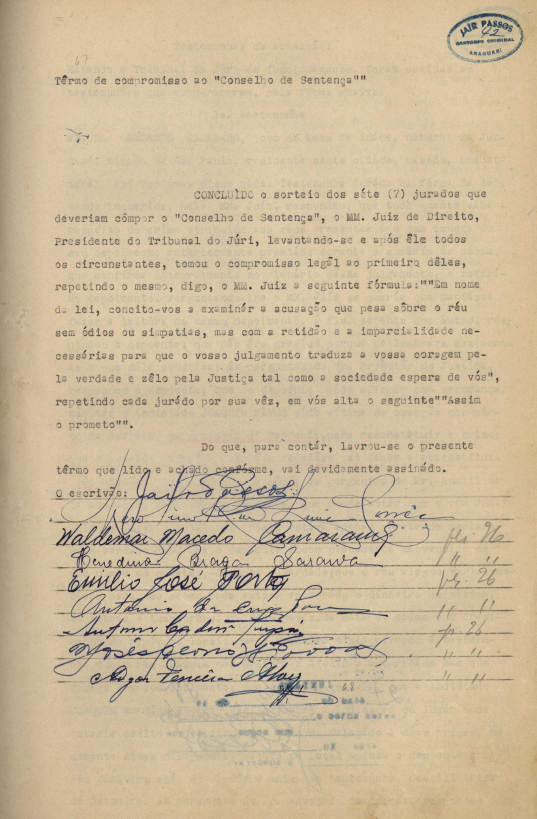 JAIR PASSOS
42
ARAGUARI
67
Têrmo de compromisso ao "Conselho de Sentença""
CONCLUÌDO o sorteio dos séte (7) jurados que
deveriam cômpor o "Conselho de Sentença", o MM. Juiz de Direito,
Presidente do Tribunal do Júri, levantando-se e após êle todos
os circunstantes, tomou o compromisso legal ao primeiro dêles,
repetindo o mesmo, digo, o MM. Juiz a seguinte fórmula:""Em nome
da lei, concito-vos a examinár a acusação que pesa sôbre o réu
sem ódios ou simpatias, mas com a retidão e a imparcialidade ne-
cessárias para que o vosso julgamento traduza a vossa coragem pe-
la verdade e zêlo pela Justiça tal como a sociedade espera de vós",
repetindo cada jurádo por sua vêz, em vós alta o seguinte""Assim
o prometo"".
Do que, para contár, lavrou-se o presente
têrmo que lido e achado confórme, vai devidamente assinádo.
O escrivão: Jair Passos
Waldemar Macedo Camarano fls. 26
Braga Saraiva " "
Emilio José Porto fls. 26
Antônio da " "
Antonio 26
Moisés " "
Edgar " "
68